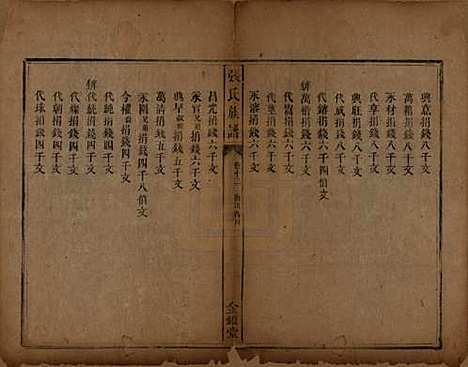 興嘉捐錢八千文
萬箱捐錢八千文
永材捐錢八千文
代享捐錢八千文
興旺捐錢八千文
代威捐錢八千文
代鏞捐錢八千四百文
萬帷捐錢六千文
代富捐錢六千文
代墓捐錢六千文
永濬捐錢六千文
張氏族譜
金鑑堂
昌元捐錢六千文
永官兄弟捐錢六千文
典早叔姪捐錢五千文
萬清捐錢五千文
永剛兄弟捐錢四千八伯文
令權捐錢四千文
代純捐錢四千文
代統捐錢四千文
代燦捐錢四千文
代朝捐錢四千文
代珠捐錢四千文